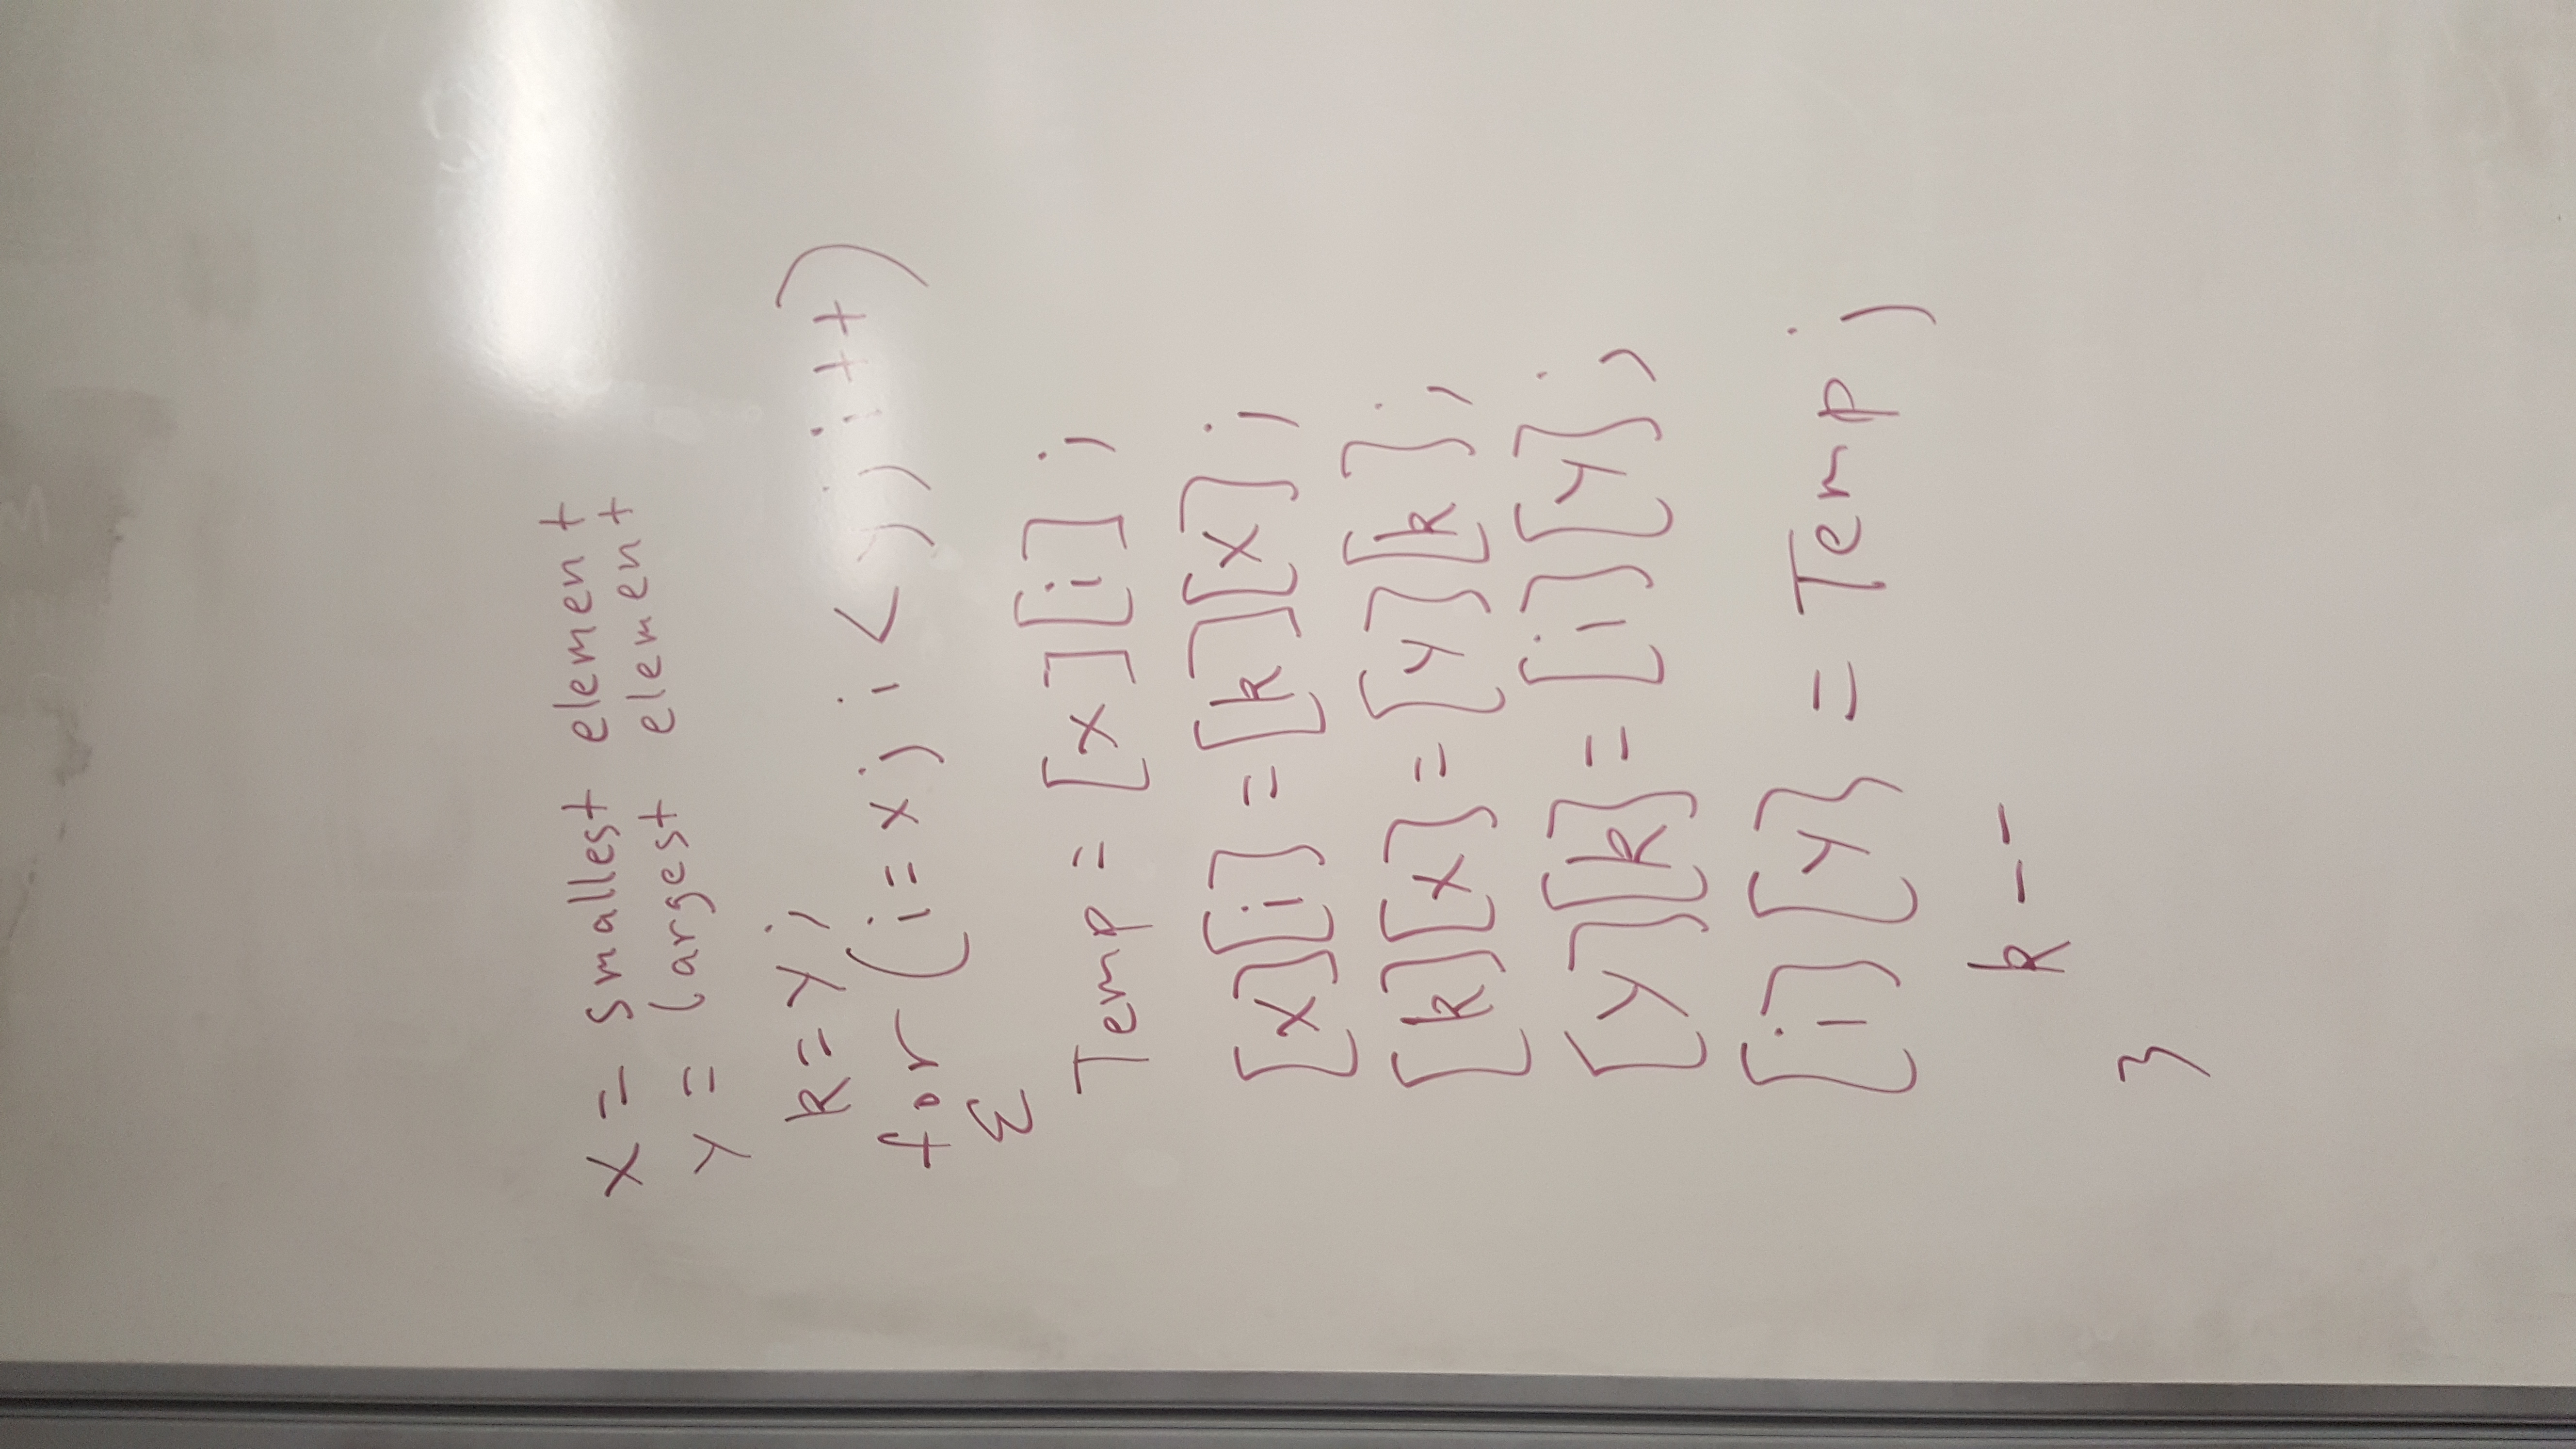 x = smallest element
y = largest element
k=y;
for(i=x; i<y; i++)
{
Temp = [x][i];
[x][i] = [k][x];
[k][x] = [y][k];
[y][k] = [i][y];
[i][y] = Temp;
k--
}